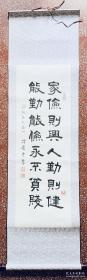 家儉則興人勤則健
能勤能儉永不貧賤